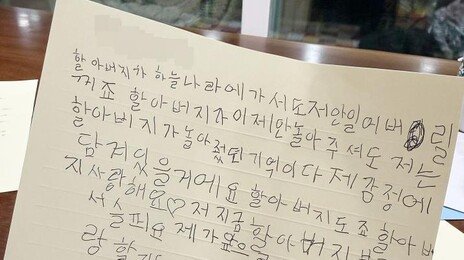 할아버지가 하늘나라에가서도저안잊어버릴
꺼죠 할아버지가이제안놀아주셔도 저는
할아버지가놀아줬던기억이다제감정에
담겨있을거에요 할아버지도죠 할아버
지사랑해요♡저지금할아버지
슬퍼요 제가
랑